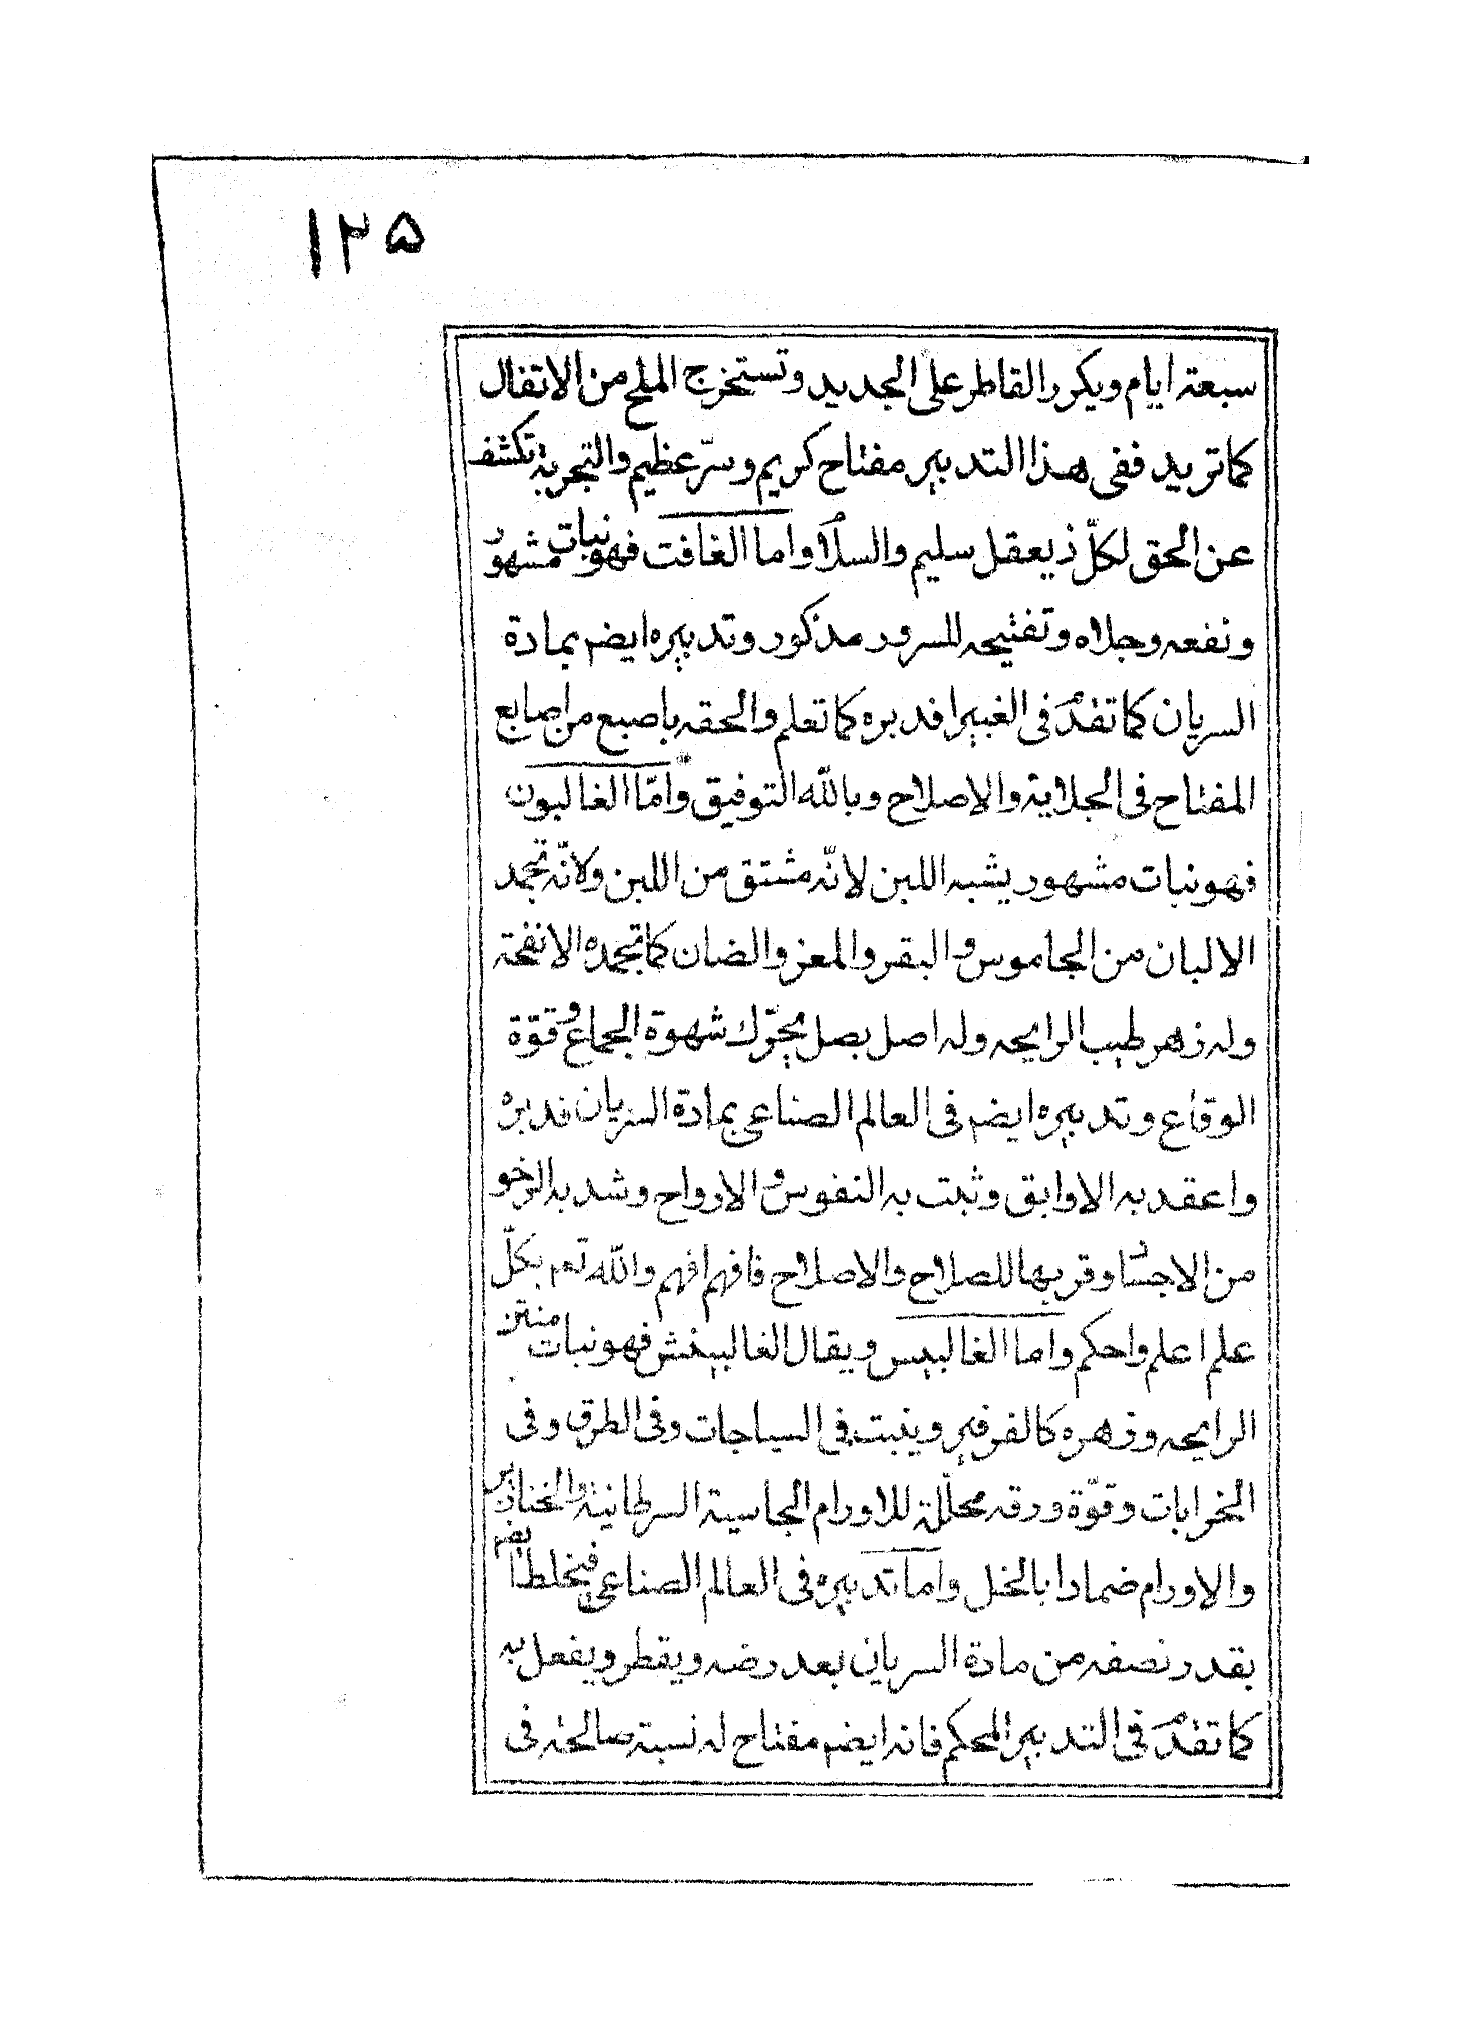 ١٢٥
سبعة ايام ويكرر القاطر على الجديد وتستخرج الملح من الاتفال
كما تريد ففى هذا التدبير مفتاح كريم وسرّ عظيم والتجربة تكشف
عن الحق لكلّ ذي عقل سليم والسلام واما الغافت فهو نبات مشهور
ونفعه وجلاه وتفتيحه للسرور مذكور وتدبيره ايضم بمادة
السريان كما تقدم فى الغبيرا فدبره كما تعلم والحقه باصبع من اصابع
المفتاح فى الجلاية والاصلاح وبالله التوفيق وامّا الغالبون
فهو نبات مشهور يشبه اللبن لانّه مشتق من اللبن ولانّه تجمد
الالبان من الجاموس والبقر والمعز والضان كما تجمده الانفحة
وله زهر طيب الرايحه وله اصل بصل يحرّك شهوة الجماع وقوّة
الوقاع وتدبيره ايضم فى العالم الصناعى بمادة السريان فدبره
واعقد به الاوابق وثبت به النفوس والارواح وشد به الرخو
من الاجساد وقربها للصلاح والاصلاح فافهم افهم والله تعم بكلّ
علم اعلم واحكم واما الغالبيس ويقال الغالبيخش فهو نبات منتن
الرايحه وزهره كالفرفير وينبت فى السياجات وفى الطرق وفى
الخرابات وقوّة ورقه محلّلة للاورام الجاسية السرطانية والخنازير
والاورام ضمادا بالخل واما تدبيره فى العالم الصناعى فيخلط ايضم
بقدر نصفه من مادة السريان بعد رضه ويقطر ويفعل به
كما تقدم فى التدبير المحكم فانه ايضم مفتاح له نسبة صالحة فى